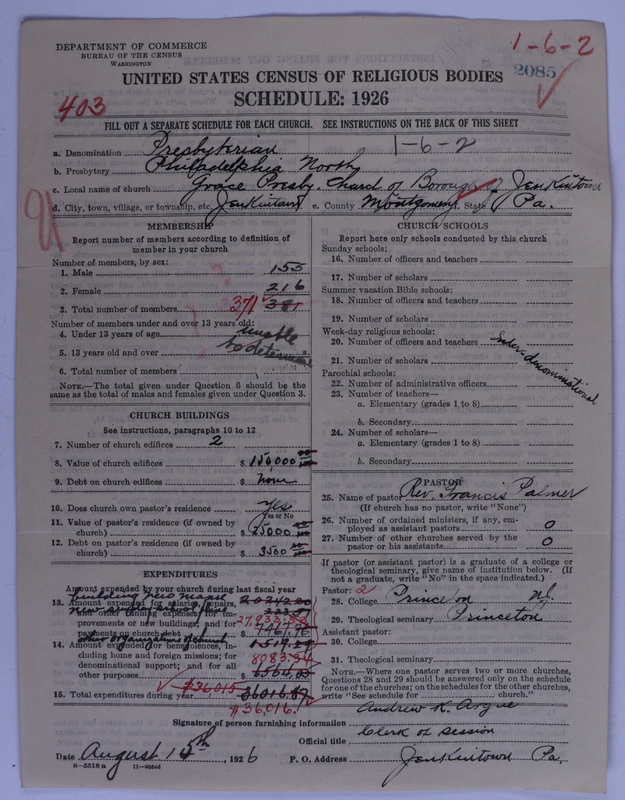 DEPARTMENT OF COMMERCE
BUREAU OF THE CENSUS
WASHINGTON
1-6-2
2085
UNITED STATES CENSUS OF RELIGIOUS BODIES
SCHEDULE: 1926
403
FILL OUT A SEPARATE SCHEDULE FOR EACH CHURCH. SEE INSTRUCTIONS ON THE BACK OF THIS SHEET
a. Denomination Presbyterian 1-6-2
b. Presbytery Philadelphia North
c. Local name of church Grace Presby. Church of Borough of Jenkintown
d. City, town, village, or township, etc. Jenkintown e. County Montgomery State Pa.
MEMBERSHIP
Report number of members according to definition of member in your church
Number of members, by sex:
1. Male 155
2. Female 216
3. Total number of members 371 381
Number of members under and over 13 years old:
4. Under 13 years of age unable
5. 13 years old and over to determine
6. Total number of members
NOTE.—The total given under Question 6 should be the same as the total of males and females given under Question 3.
CHURCH BUILDINGS
See instructions, paragraphs 10 to 12
7. Number of church edifices 2
8. Value of church edifices $ 150,000 00
9. Debt on church edifices $ none
10. Does church own pastor's residence? yes
Yes or No
11. Value of pastor's residence (if owned by church) $ 25000 00
12. Debt on pastor's residence (if owned by church) $ 3500 00
EXPENDITURES
Amount expended by your church during last fiscal year
13. Amount expended for salaries, repairs, and other running expenses; for improvements or new buildings, and for payments on church debt $ 27,933.53
7467.76
14. Amount expended for benevolences, including home and foreign missions; for denominational support; and for all other purposes $ 1519.51
8083.54
6564.03
15. Total expenditures during year $36015 36016.87
$36016.
CHURCH SCHOOLS
Report here only schools conducted by this church
Sunday schools:
16. Number of officers and teachers
17. Number of scholars
Summer vacation Bible schools:
18. Number of officers and teachers
19. Number of scholars
Week-day religious schools:
20. Number of officers and teachers Inter-denominational
21. Number of scholars
Parochial schools:
22. Number of administrative officers
23. Number of teachers—
a. Elementary (grades 1 to 8)
b. Secondary
24. Number of scholars—
a. Elementary (grades 1 to 8)
b. Secondary
PASTOR
25. Name of pastor Rev. Francis Palmer
(If church has no pastor, write "None")
26. Number of ordained ministers, if any, employed as assistant pastors 0
27. Number of other churches served by the pastor or his assistants 0
If pastor (or assistant pastor) is a graduate of a college or theological seminary, give name of institution below. (If not a graduate, write "No" in the space indicated.)
Pastor: 2
28. College Princeton N.J.
29. Theological seminary Princeton
Assistant pastor:
30. College
31. Theological seminary
NOTE.—Where one pastor serves two or more churches, Questions 28 and 29 should be answered only on the schedule for one of the churches; on the schedules for the other churches, write "See schedule for church."
Signature of person furnishing information Andrew K. Argue
Official title Clerk of Session
Date August 14th, 1926 P. O. Address Jenkintown Pa.
8-5518 a